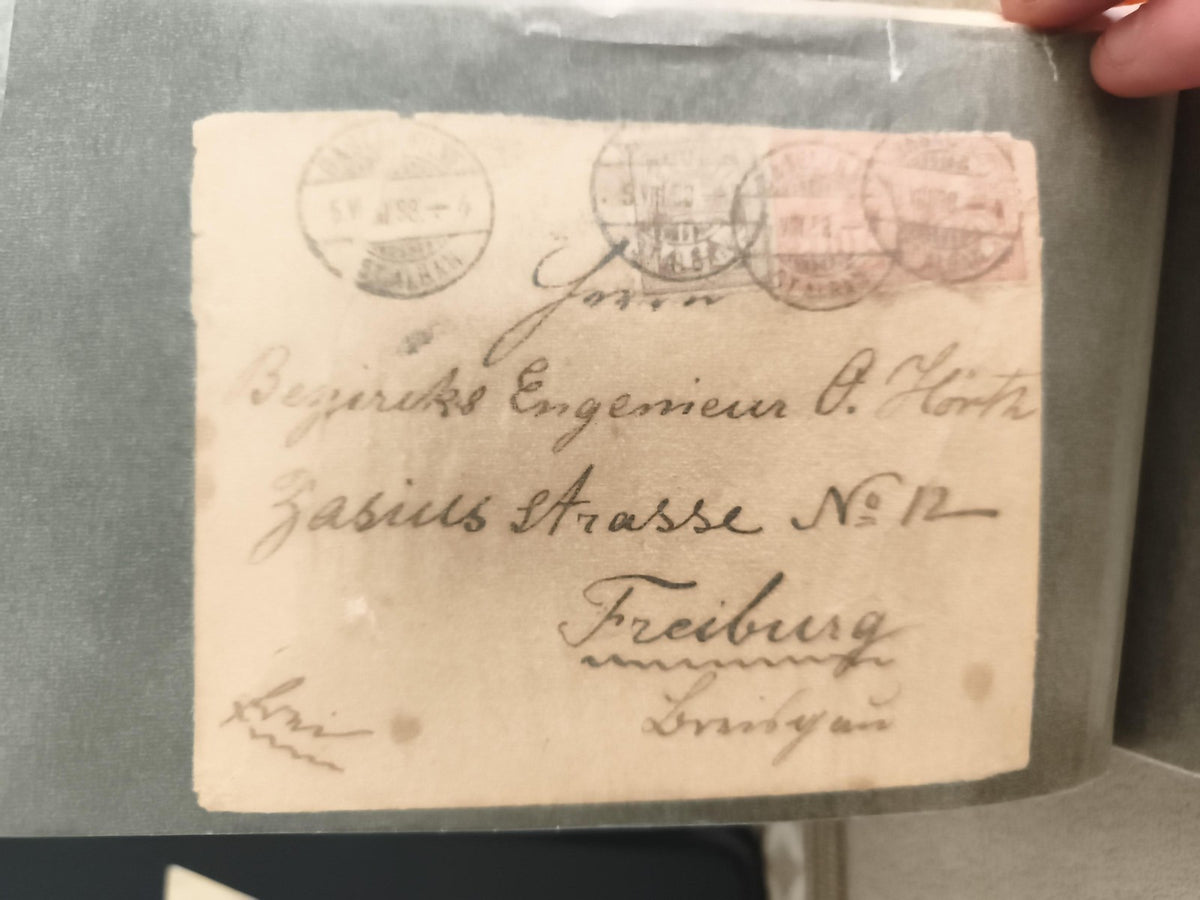 ST. ALBAN
Herrn
Bezireks Engenieur O. Hörth
Zasius strasse No 12
Freiburg
Breisgau
frei